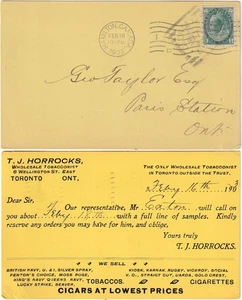 CANADA
FEB 16
Geo Taylor Esq
Paris Station
Ont
T. J. HORROCKS,
WHOLESALE TOBACCONIST
6 WELLINGTON ST. EAST
TORONTO ONT.
THE ONLY WHOLESALE TOBACCONIST
IN TORONTO OUTSIDE THE TRUST.
Feby 16th 190
Dear Sir,
Our representative, Mr Eaton will call on
you about Feby with a full line of samples. Kindly
reserve any orders you may have for him, and oblige
Yours truly
T. J. HORROCKS.
WE SELL
BRITISH NAVY, U. &. I., SILVER SPRAY,
FENTON'S CHOICE, MOSS ROSE,
KING'S NAVY QUEENS NAVY,
LUCKY STRIKE, BEAVER,
TOBACCOS.
KIOSK, KARNAK, RUGBY, VICEROY, SOCIAL
V. O., STRAIGHT CUT, GUARDA, GOLD CREST.
CIGARETTES
CIGARS AT LOWEST PRICES